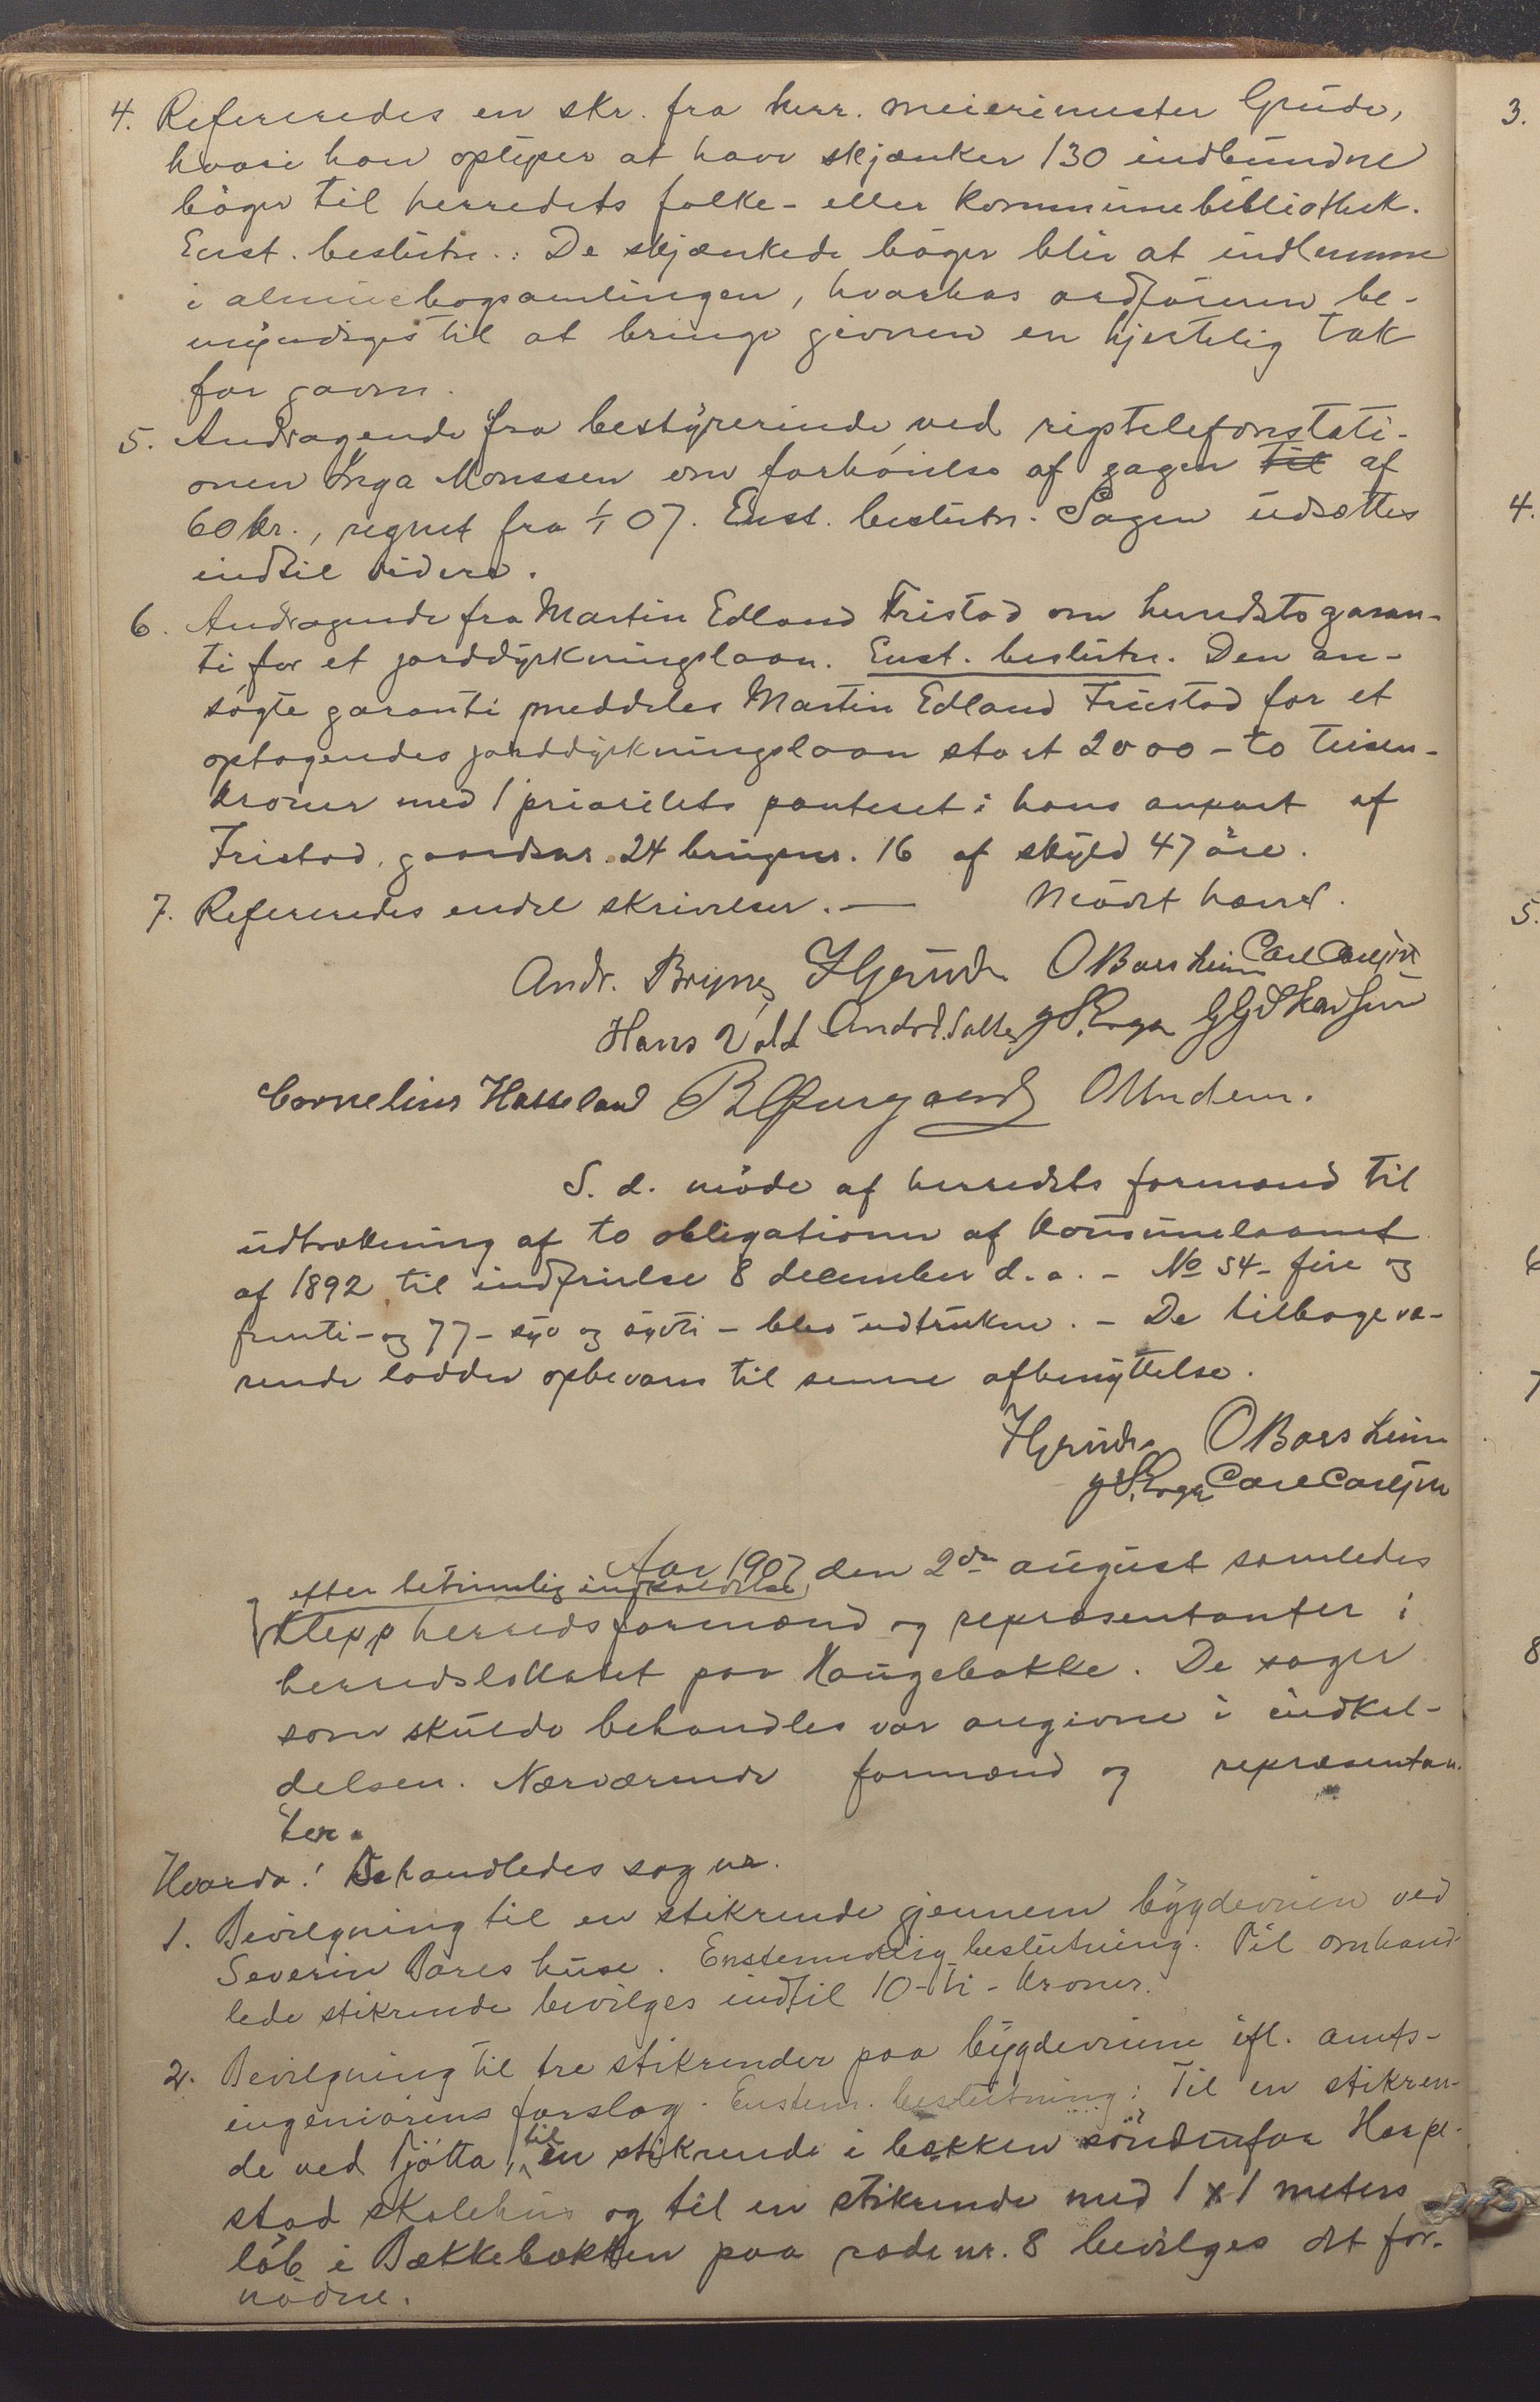 4. Refereredes en skr. fra herr. meierimester Grude,
hvori han oplyser at have skjænket 130 indbundne
bøger til herredets folke- eller kommunebibliothek.
Enst. beslutn.: De skjænkede bøger blir at indlemme
i almuebogsamlingen, hvorhos ordføreren be-
myndiges til at bringe giveren en hjertelig tak
for gaven.
5. Andragende fra bestyrerinde ved rigstelefonstati-
onen Inga Monssen om forhøielse af gagen til af
60 kr., regnet fra 1/1 07. Enst. beslutn. Sagen udsættes
indtil videre.
6. Andragende fra Martin Edland Fristad om herredets garan-
ti for et jorddyrkningslaan. Enst. beslutn. Den an-
søgte garanti meddeles Martin Edland Friestad for et
optagendes jorddyrkningslaan stort 2000 - to tusen -
kroner med 1 prioritets panteret i hans anpart af
Fristad, gaardsnr. 24 brugsnr. 16 af skyld 47 øre.
7. Refereredes endel skrivelser. — Mödet hævet.
Andr. Bryne HGrude O Borsheim Carl Carlsen
Hans Vold Andr. Salte G S. Erga G G Skadsem
Cornelius Hasseland B Øksngaard O Undem.
S. d. møde af herredets formænd til
udtrækning af to obligationer af kommunelaanet
af 1892 til indfrielse 8 december d. a. - No 54 - fire og
femti - og 77 - syv og sytti - blev udtrukne. - De tilbageva-
rende lodder opbevares til senere afbenyttelse.
HGrude O Borsheim
G S. Erga Carl Carlsen
Aar 1907 den 2den august samledes
efter betimelig indkaldelse
Klepp herredsformænd og repræsentanter i
herredslokalet paa Haugebakke. De sager
som skulde behandles var angivne i indkal-
delsen. Nærværende formænd og repræsentan-
ter.
Hvorda! Behandledes sag nr.
1. Bevilgning til en stikrende gjennem bygdeveien ved
Severin Bores huse. Enstemmig beslutning. Til omhand-
lede stikrende bevilges indtil 10 - ti - kroner.
2. Bevilgning til tre stikrender paa bygdeveiene ifl. amts-
ingeniørens forslag. Enstem. beslutning: Til en stikren-
de ved Tjøtta, til en stikrende i bækken søndenfor Horpe-
stad skolehus og til en stikrende med 1 x 1 meters
løb i Bækkebakken paa rode nr. 8 bevilges det for-
nødne.
3.
4.
5.
6
7
8